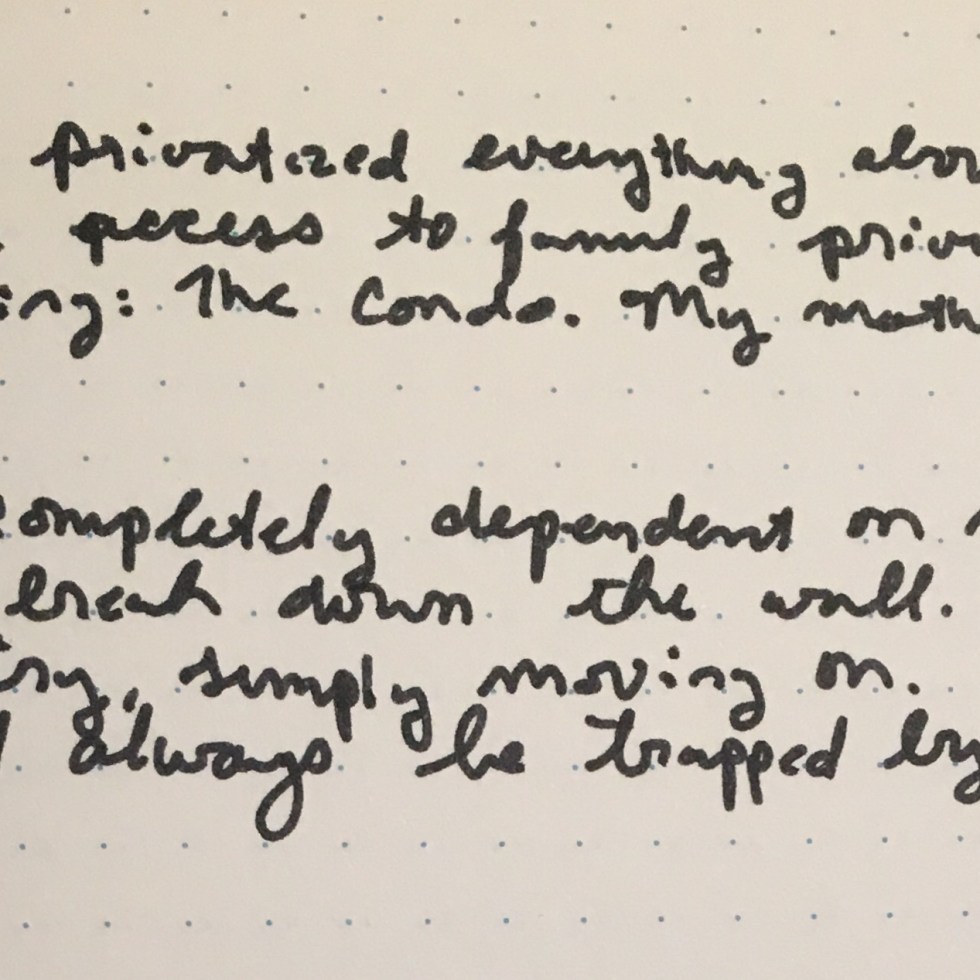 privatized everything abou
access to family priva
ing: The Condo. My moth
completely dependent on
break down the wall.
ing, simply moving on.
always be trapped by